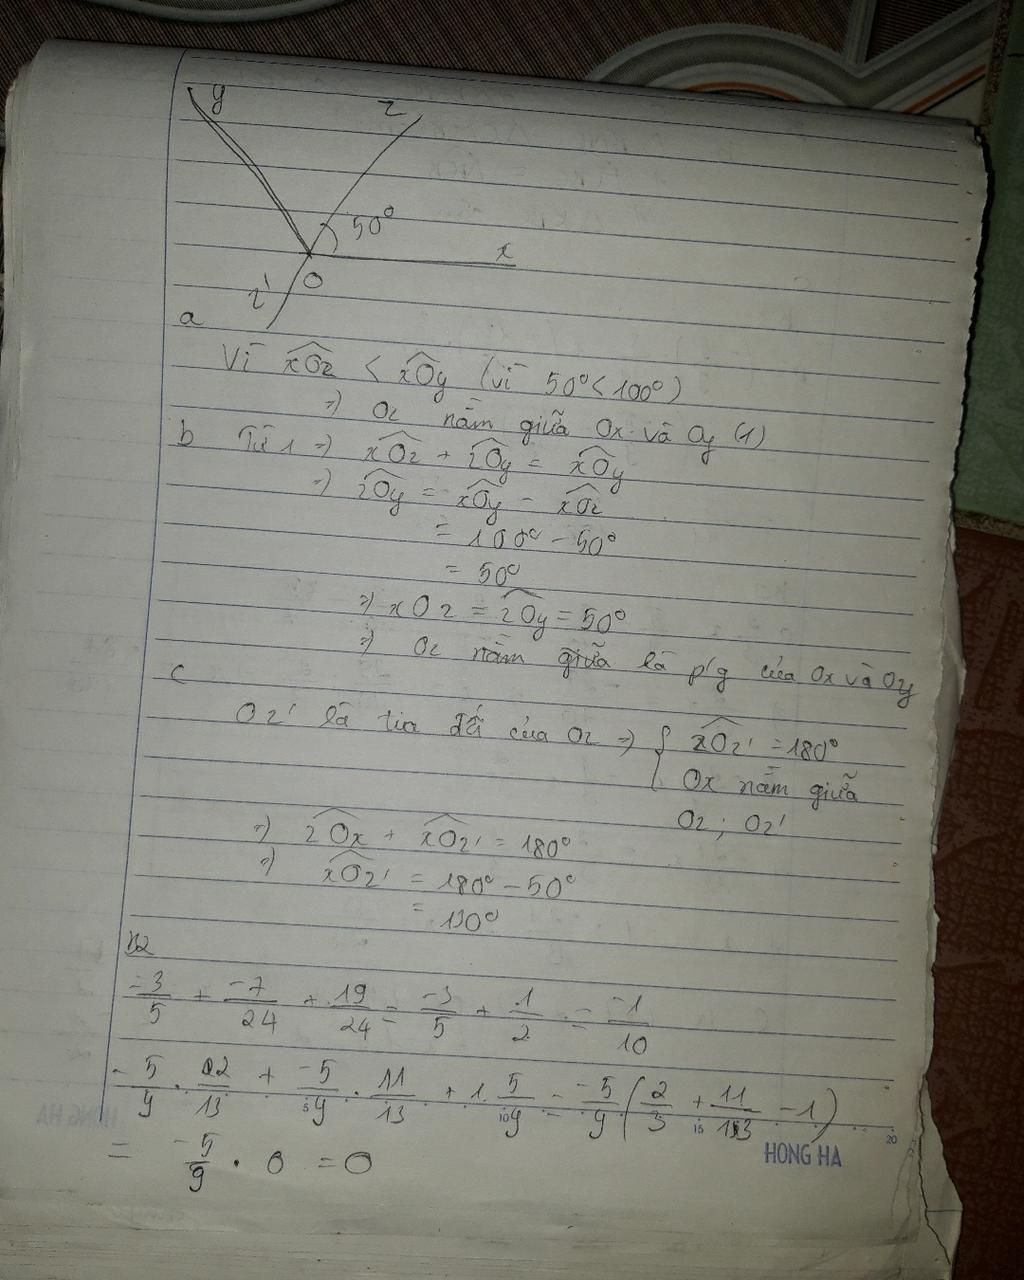 y z
50°
x
O
z'
a
Vì xOz < xOy (vì 50° < 100°)
=> Oz nằm giữa Ox và Oy (1)
b Từ 1 => xOz + zOy = xOy
=> zOy = xOy - xOz
= 100° - 50°
= 50°
=> xOz = zOy = 50°
=> Oz nằm giữa là p/g của Ox và Oy
c
Oz' là tia đối của Oz => { zOz' = 180°
Ox nằm giữa
Oz ; Oz'
=> zOx + xOz' = 180°
=> xOz' = 180° - 50°
= 130°
B2
-3/5 + -7/24 + 19/24 = -3/5 + 1/2 = -1/10
-5/9 . 2/13 + -5/9 . 11/13 + 1. 5/9 = -5/9 ( 2/3 + 11/13 - 1 )
= -5/9 . 0 = 0
5 10 15 20
HONG HA